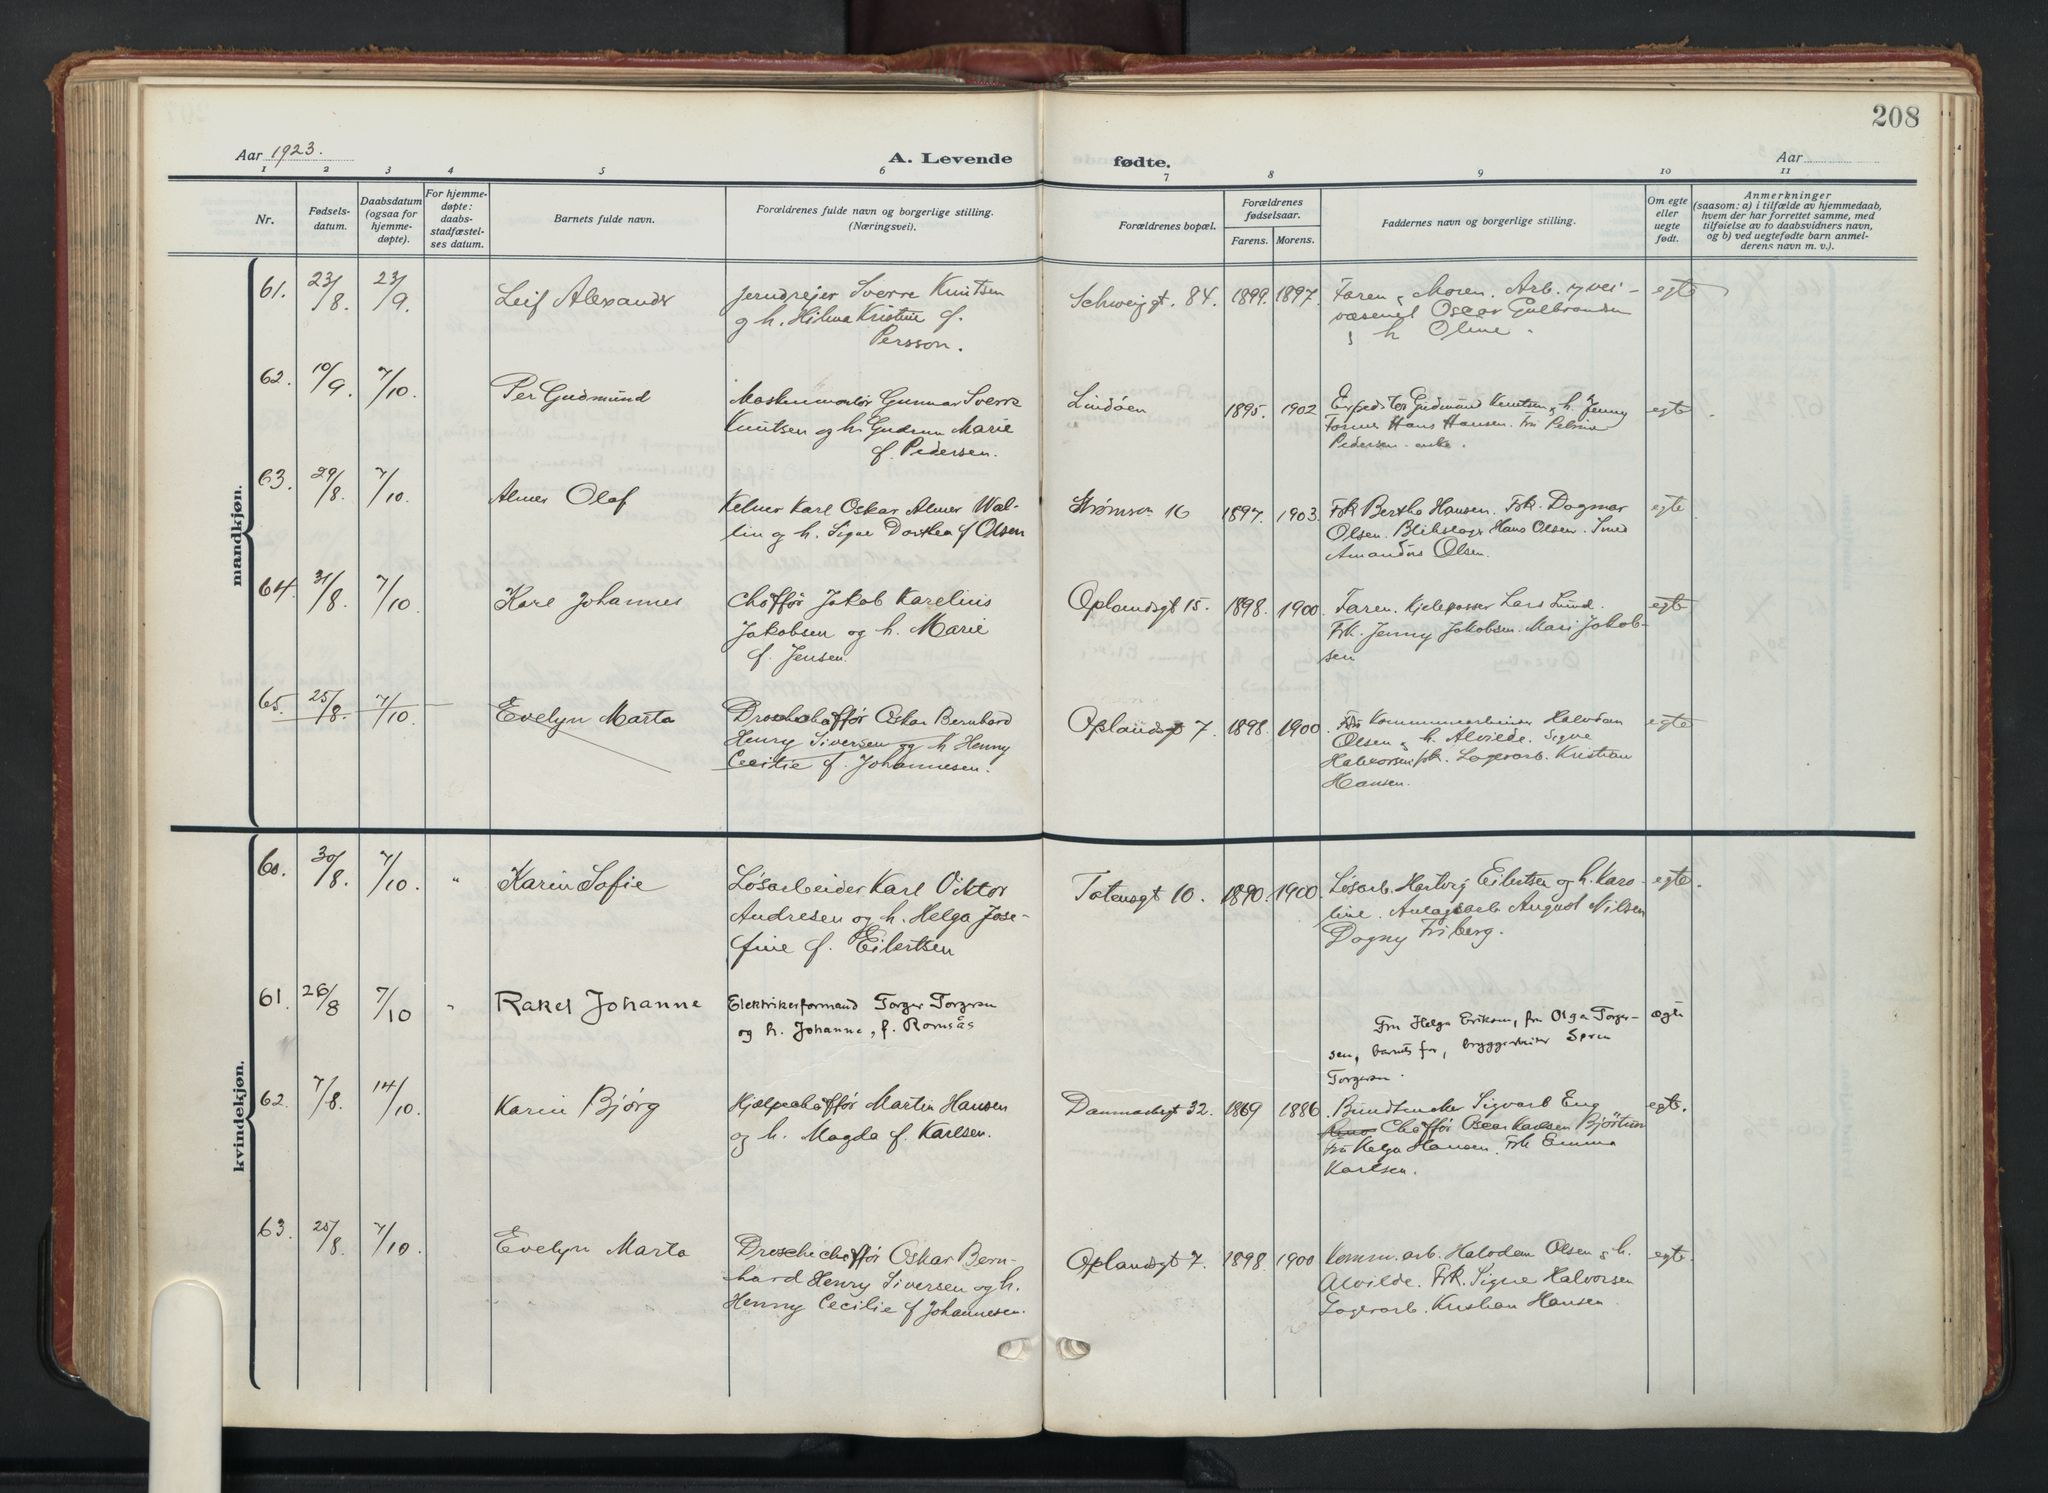 208
Aar 1923.
A. Levende fødte.
Aar
1 2 3 4 5 6 7 8 9 10 11
Nr.
Fødsels-
datum.
Daabsdatum
(ogsaa for
hjemme-
døpte).
For hjemme-
døpte:
daabs-
stadfæstel-
ses datum.
Barnets fulde navn.
Forældrenes fulde navn og borgerlige stilling.
(Næringsvei).
Forældrenes bopæl.
Forældrenes
fødselsaar.
Farens. Morens.
Faddernes navn og borgerlige stilling.
Om egte
eller
uegte
født.
Anmerkninger
(saasom: a) i tilfælde av hjemmedaab,
hvem der har forrettet samme, med
tilføielse av to daabsvidners navn,
og b) ved uegtefødte barn anmel-
derens navn m. v.).
mandkjøn.
61. 23/8. 23/9 Leif Alexander
Jerndrejer Sverre Knutsen
og h. Hilma Kristine f.
Persson.
Schweigt. 84. 1899. 1897.
Faren, Moren. Arb. v. vei-
væsenet Oscar Gulbrandsen
, h Oline.
egte
62. 10/9. 7/10. Per Gudmund
Maskinmontør Gunnar Sverre
Knutsen og h. Gudrun Marie
f. Pedersen.
Lindøen 1895. 1902
Expeditør Gudmund Knutsen, h. Jenny
Hans Hansen. Fru Petrine
Pedersen. enke.
egte
63. 29/8. 7/10. Almer Olaf
Kelner Karl Oskar Almer Wal-
lin og h. Signe Dorthea f Olsen
Strømsv 16 1897. 1903.
Frk Berthe Hansen. Frk. Dagmar
Olsen. Blikslager Hans Olsen. Smed
Amandus Olsen.
egte
64. 31/8. 7/10. Kare Johannes
Chåffør Jakob Karelius
Jakobsen og h. Marie
f. Jensen.
Oplandsgt 15. 1898. 1900.
Faren. Kjelepasser Lars Lund.
Frk. Jenny Jakobsen. Mari Jakob-
sen
egte
65. 25/8. 7/10. Evelyn Marta
Droschechåffør Oskar Bernhard
Henry Siversen og h Henny
Cecilie f. Johannesen.
Oplandsgt 7. 1898. 1900.
Kommunearbeider Halvdan
Olsen, h. Alvilde. Signe
Halvorsen frk. Lagerarb. Kristian
Hansen.
egte
kvindekjøn.
60. 30/8. 7/10. " Karin Sofie
Løsarbeider Karl Viktor
Andresen og h. Helga Jose-
fine f. Eilertsen
Totensgt 10. 1890. 1900.
Løsarb. Hartvig Eilertsen og h. Karo-
line. Anlægsarb. August Nilsen
Dagny Friberg.
egte.
61. 26/8 7/10 " Rakel Johanne
Elektrikerformand Torger Torgersen
og h. Johanne, f. Romsås
Fru Helga Eriksen, fru Olga Torger-
sen, barnets far, bryggearbeider Søren
Torgersen.
ægte
62. 7/8. 14/10. Karin Bjørg
Hjælpechåffør Martin Hansen
og h. Magda f. Karlsen.
Danmarksgt 32. 1869 1886
Bundtmaker Sigvart Eng
Chåffør Oscar Karlsen Bjørtun
Fru Helga Hansen. Frk Emma
Karlsen.
egte.
63. 25/8. 7/10. Evelyn Marta
Droschechåffør Oskar Bern-
hard Henry Siversen og h.
Henny Cecilie f Johannesen.
Oplandsgt 7. 1898. 1900
Komm. arb. Halvdan Olsen, h.
Alvilde. Frk. Signe Halvorsen
Lagerarb. Kristian Hansen
egte.